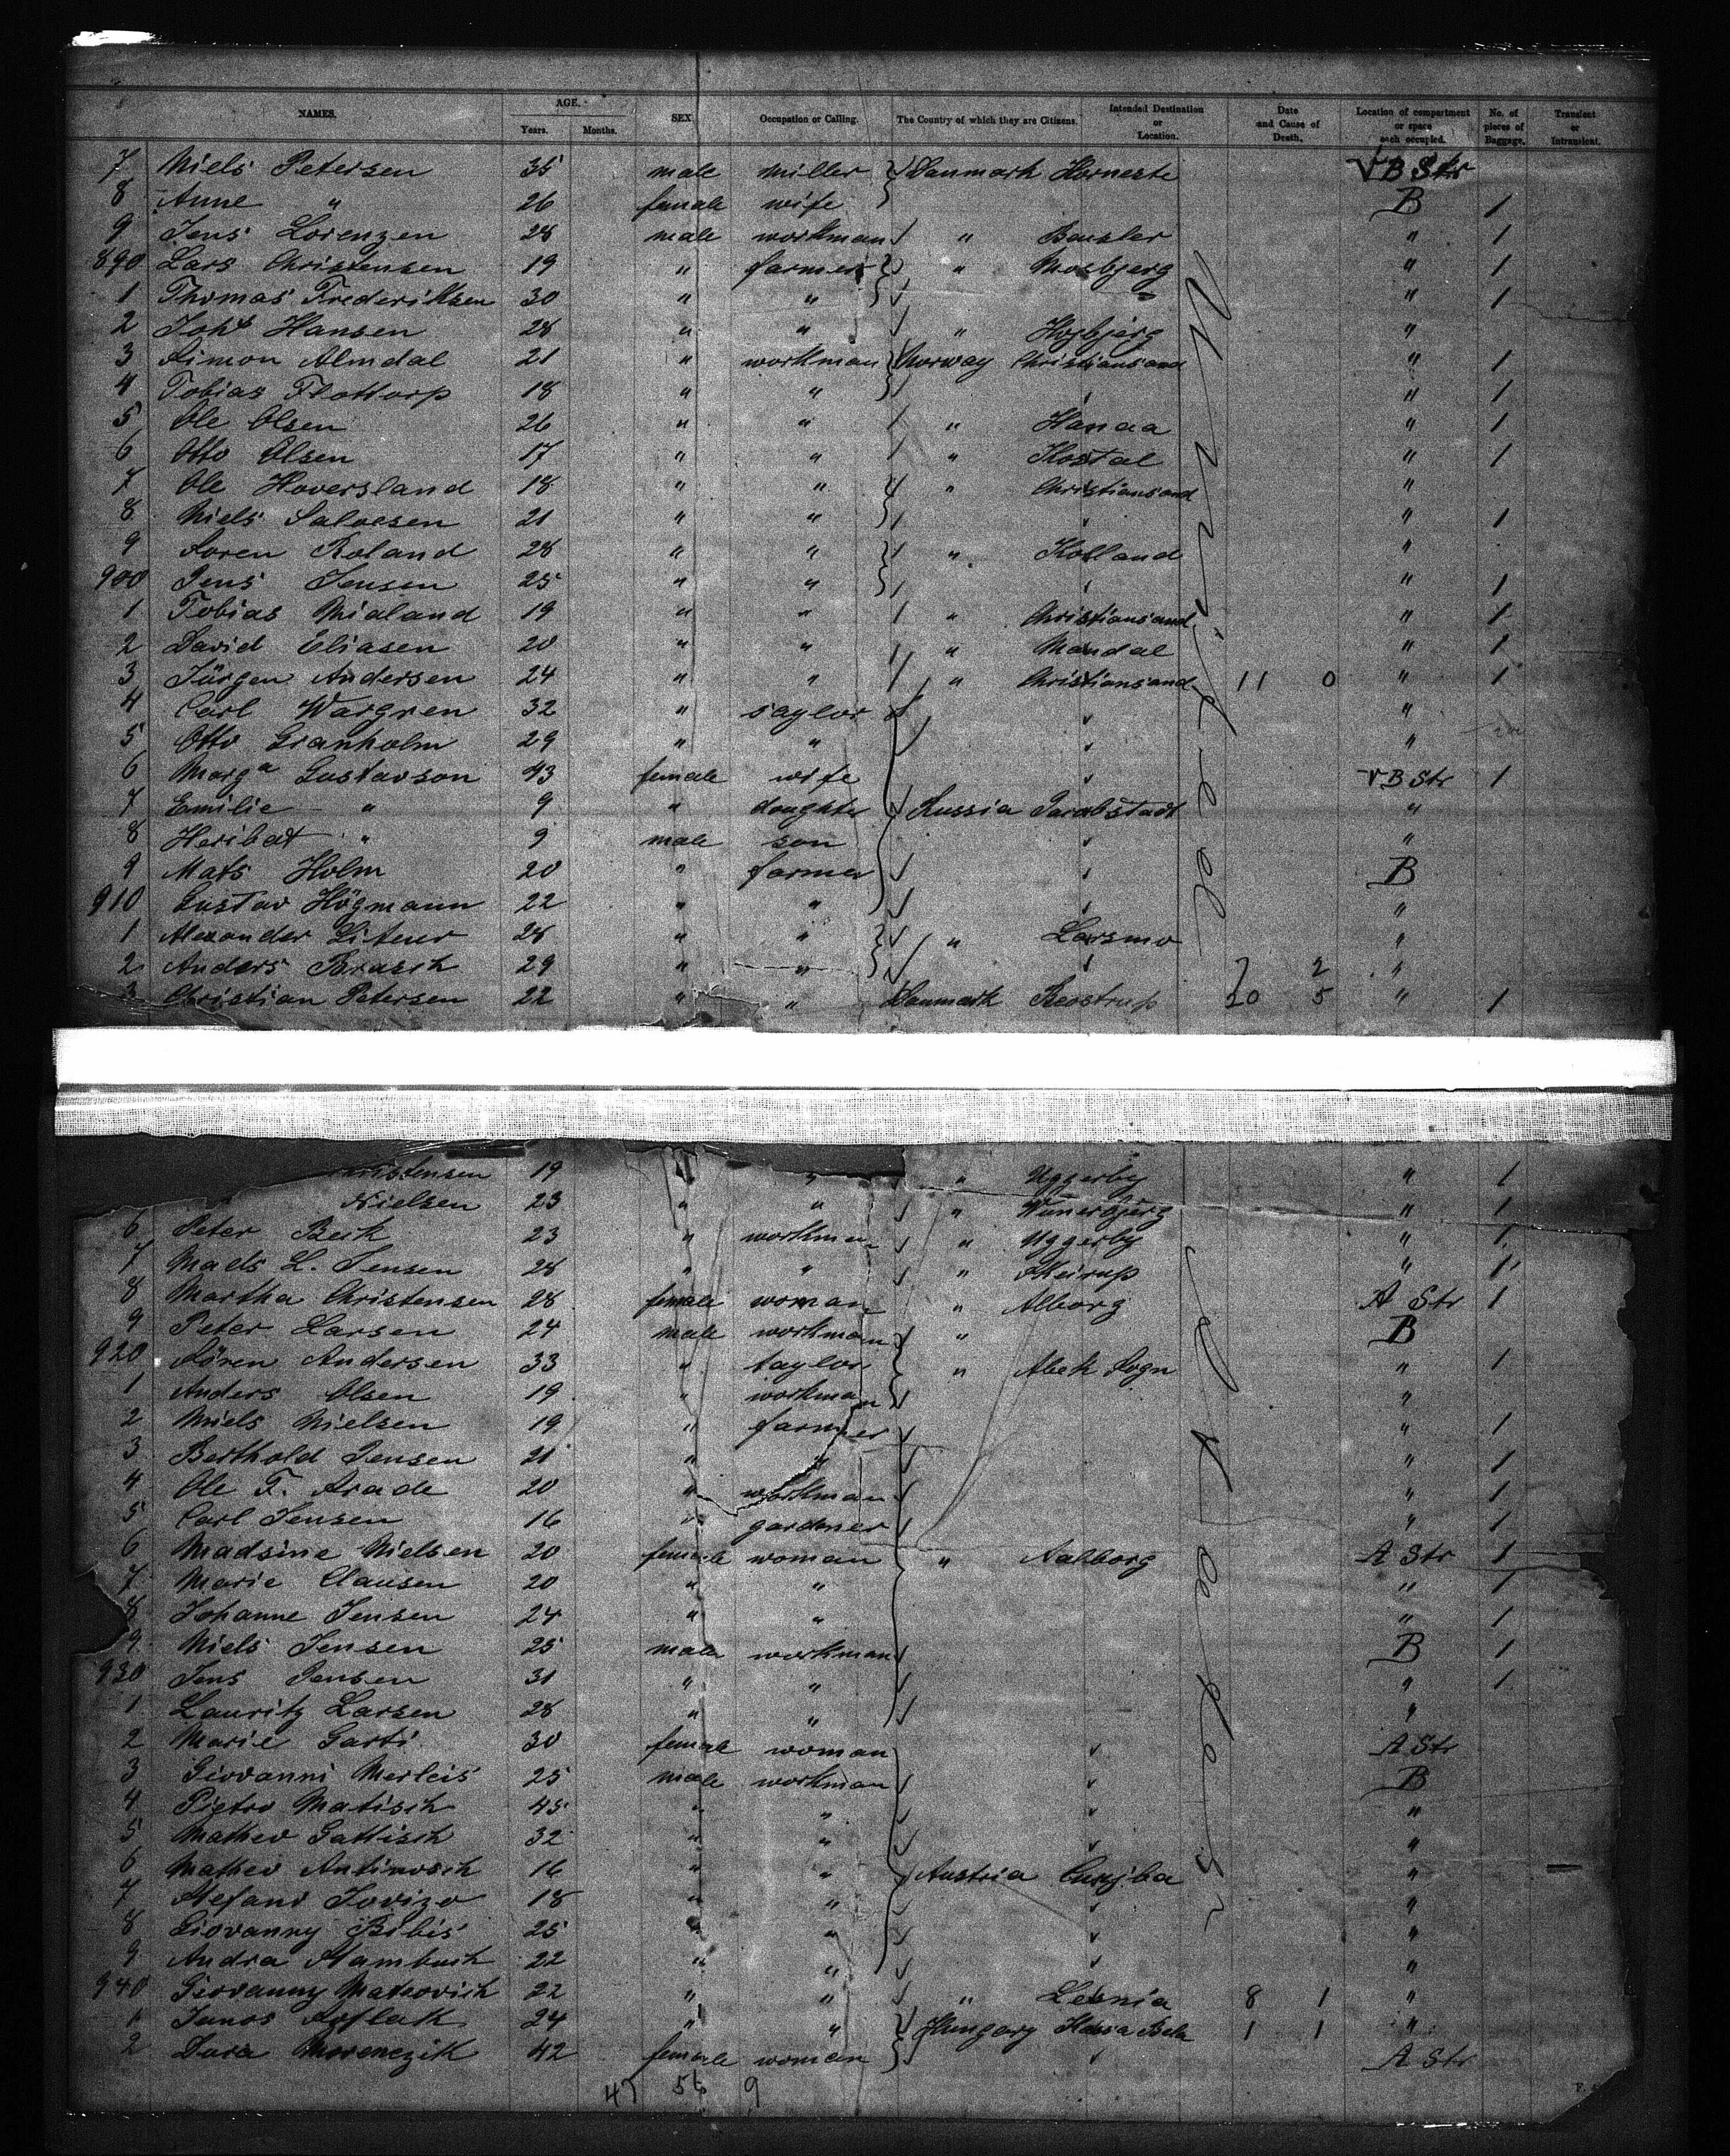 NAMES. AGE. Years. Months. SEX Occupation or Calling. The Country of which they are Citizens. Intended Destination or Location. Date and Cause of Death. Location of compartment or space each occupied. No. of pieces of Baggage. Transient or Intransient.
7 Niels Petersen 35 male miller Danmark Horneste B Str
8 Anne " 26 female wife B 1
9 Jens Lorenzen 28 male workman " " 1
890 Lars Christensen 19 " farmer " Mosbjerg " 1
1 Thomas Frederiksen 30 " " " 1
2 Hansen 28 " " " "
3 Simon Almdal 21 " workman Norway Christiansand " 1
4 Tobias Flottorp 18 " " " 1
5 Ole Olsen 26 " " " Hanaa " 1
6 Otto Olsen 17 " " " Kostal " 1
7 Ole Hoversland 18 " " " Christiansand "
8 Niels Salvesen 21 " " " 1
9 Soren Roland 28 " " " Kolland "
900 Jens Jensen 25 " " " 1
1 Tobias Mialand 19 " " " Christiansand " 1
2 David Eliasen 20 " " " Mandal " 1
3 Jürgen Andersen 24 " " " Christiansand 11 0 " 1
4 Carl Wargren 32 " saylor "
5 Otto Granholm 29 " " "
6 Marga Gustavson 43 female wife B Str 1
7 Emilie " 9 " daughter Russia "
8 " 9 male son "
9 Mats Holm 20 " farmer B
910 Gustav Högmann 22 " " "
1 Alexander 28 " " " Larsmo "
2 Anders Brasch 29 " " 2 "
3 Christian Petersen 22 " " Danmark 20 5 " 1
ristensen 19 " " " Uggerby " 1
Nielsen 23 " " " " 1
6 Peter Beck 23 " workman " Uggerby " 1
7 Mads L. Jensen 28 " " " " 1
8 Martha Christensen 28 female woman " Alborg A Str 1
9 Peter Larsen 24 male workman " B
920 Sören Andersen 33 " taylor " Sogn " 1
1 Anders Olsen 19 " workman "
2 Niels Nielsen 19 " farmer " 1
3 Berthold Jensen 21 " " " 1
4 Ole F. 20 " workman " 1
5 Carl Jensen 16 " gardner " 1
6 Madsine Nielsen 20 female woman " Aalborg A Str 1
7 Marie Clausen 20 " " " 1
8 Johanne Jensen 24 " " " 1
9 Niels Jensen 25 male workman B 1
930 Jens Jensen 31 " " " 1
1 Lauritz Larsen 28 " " "
2 Marie Garti 30 female woman A Str
3 Giovanni Merleis 25 male workman B
4 Pietro Matisch 45 " " "
5 Matheo Gattisch 32 " " "
6 Matheo Antinosch 16 " " Austria "
7 Stefano Jovizo 18 " " "
8 Giovanny Bibis 25 " " "
9 Andra Stambuch 22 " " "
940 Giovanny Mateovich 22 " " " 8 1 "
1 Janos 24 " " Hungary 1 1 "
2 42 female woman A Str
47 56 9